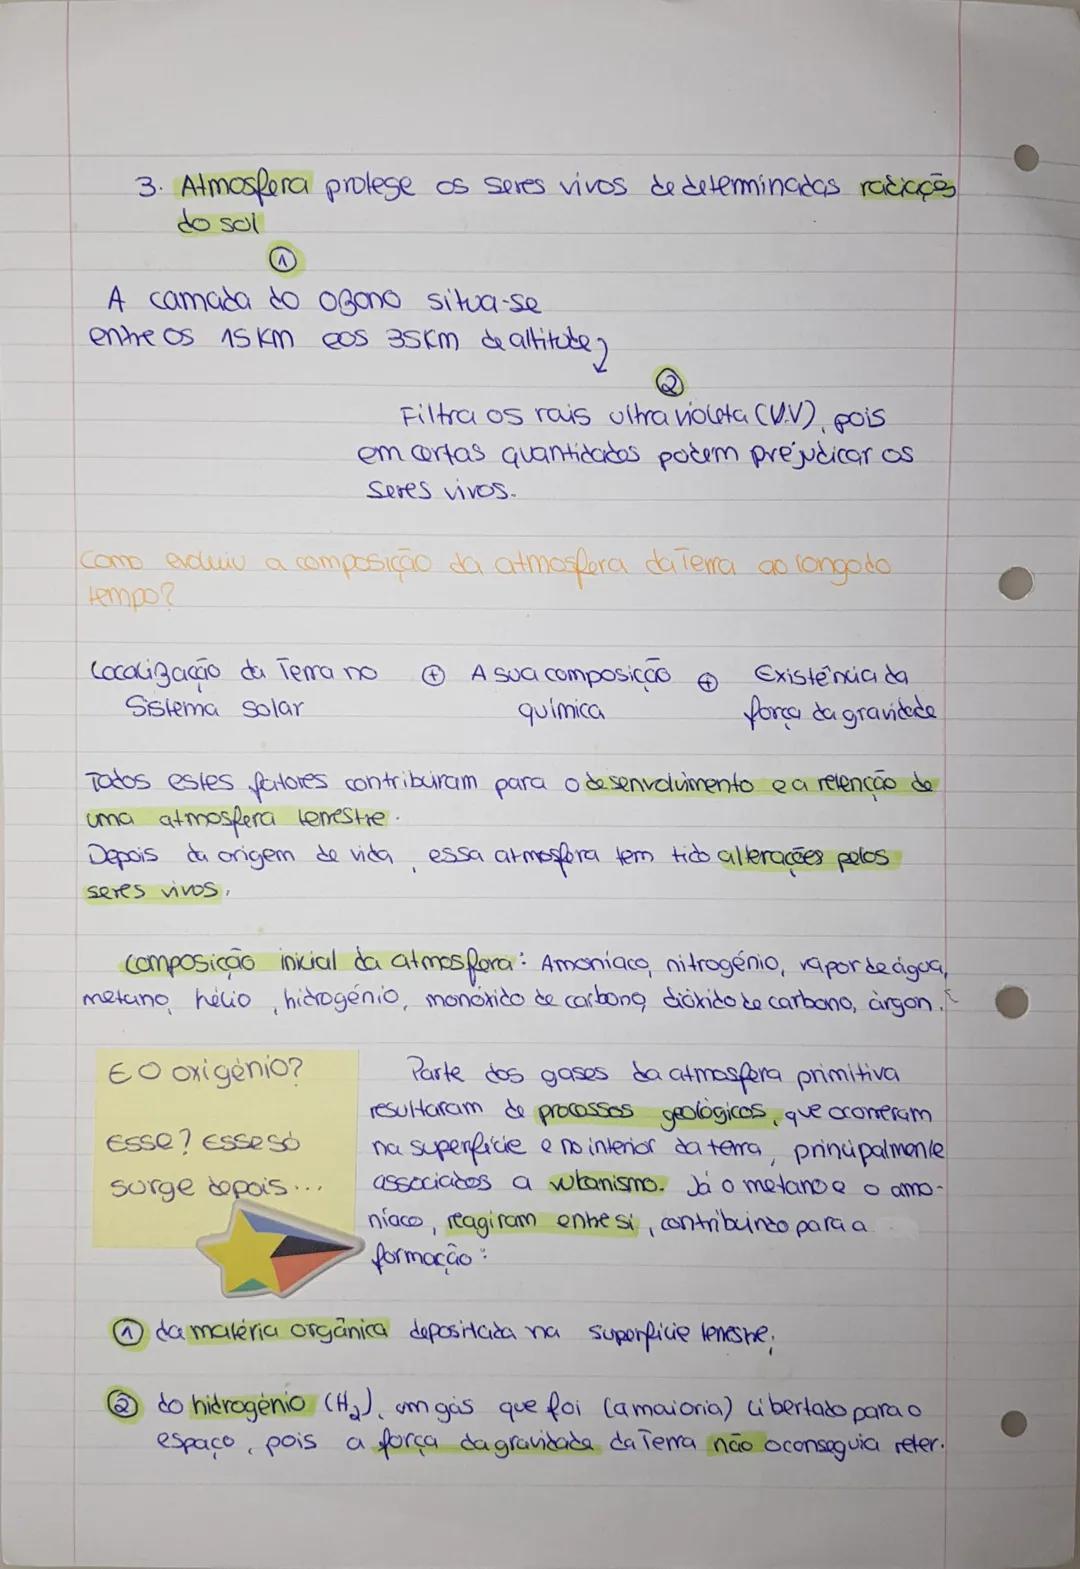 3. Atmosfera protege os seres vivos de determinadas radiações
do sol
1
A camada do ozono situa-se
entre os 15 Km e os 35 Km de altitude
2
Filtra os rais ultra violeta (U.V), pois
em certas quantidades podem prejudicar os
seres vivos.
Como evoluiu a composição da atmosfera da Terra ao longo do
tempo?
Localização da Terra no + A sua composição + Existência da
Sistema solar química força da gravidade
Todos estes fatores contribuiram para o desenvolvimento e a retenção de
uma atmosfera terrestre.
Depois da origem de vida, essa atmosfera tem tido alterações pelos
seres vivos.
Composição inicial da atmosfera: Amoníaco, nitrogénio, vapor de água,
metano, hélio, hidrogénio, monóxido de carbono, dióxido de carbono, árgon.
E O oxigénio?
Esse? Esse só
surge depois...
Parte dos gases da atmosfera primitiva
resultaram de processos geológicos, que ocorreram
na superfície e no interior da terra, principalmente
associados a vulcanismo. Já o metano e o amo-
níaco, reagiram entre si, contribuindo para a
formação:
1 da matéria orgânica depositada na superfície terrestre;
2 do hidrogénio (H2), um gás que foi (a maioria) libertado para o
espaço, pois a força da gravidade da Terra não o conseguia reter.